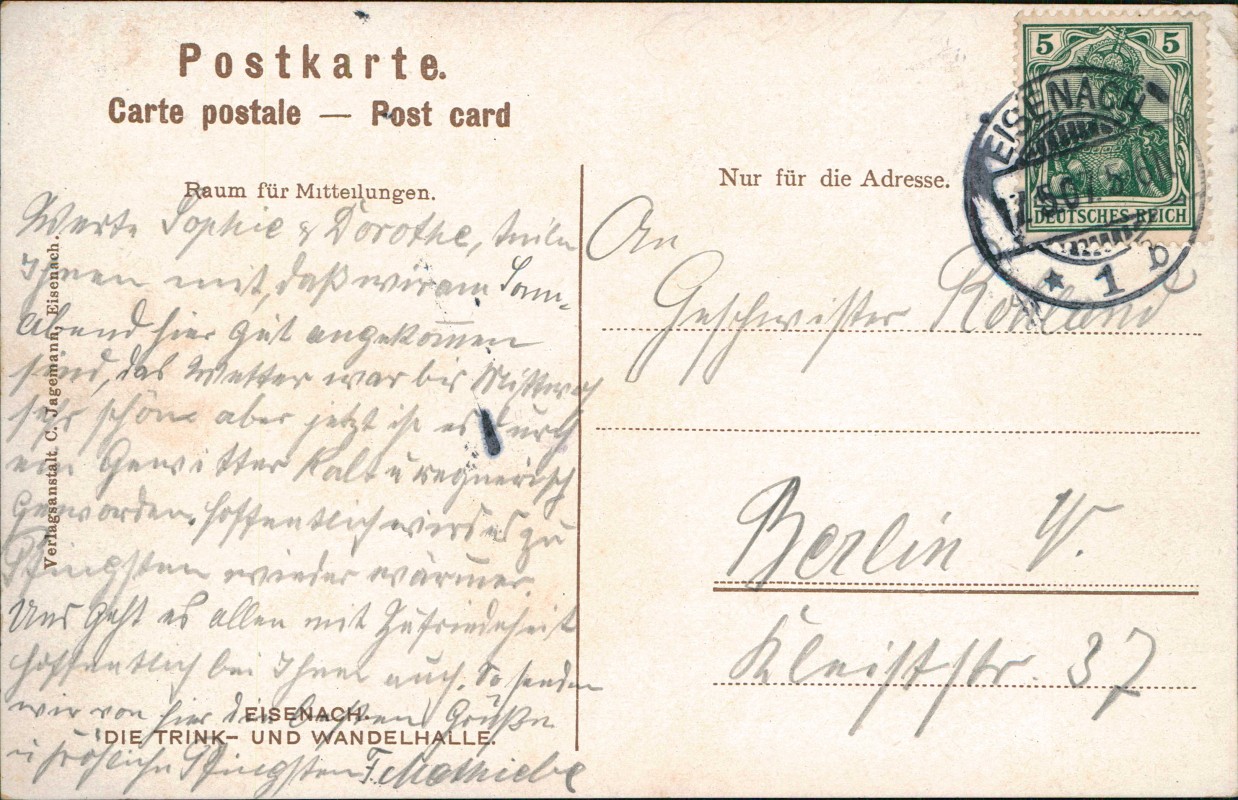 Postkarte.
Carte postale — Post card
Raum für Mitteilungen.
Nur für die Adresse.
5 5
DEUTSCHES REICH
EISENACH
* 1 b
Werte Sophie & Dorothe, teilen
Ihnen mit, daß wir am Sonn-
abend hier gut angekommen
sind, das Wetter war bis Mittwoch
sehr schön aber jetzt ist es durch
ein Gewitter kalt u regnerisch
geworden. hoffentlich wird es zu
Pfingsten wieder wärmer.
Uns geht es allen mit Zufriedenheit
hoffentlich bei Ihnen auch. So senden
wir von hier die besten Grüße
u fröhliche Pfingsten
An
Geschwister
Berlin W.
Kleiststr. 37
EISENACH.
DIE TRINK- UND WANDELHALLE.
Verlagsanstalt C. Jagemann, Eisenach.